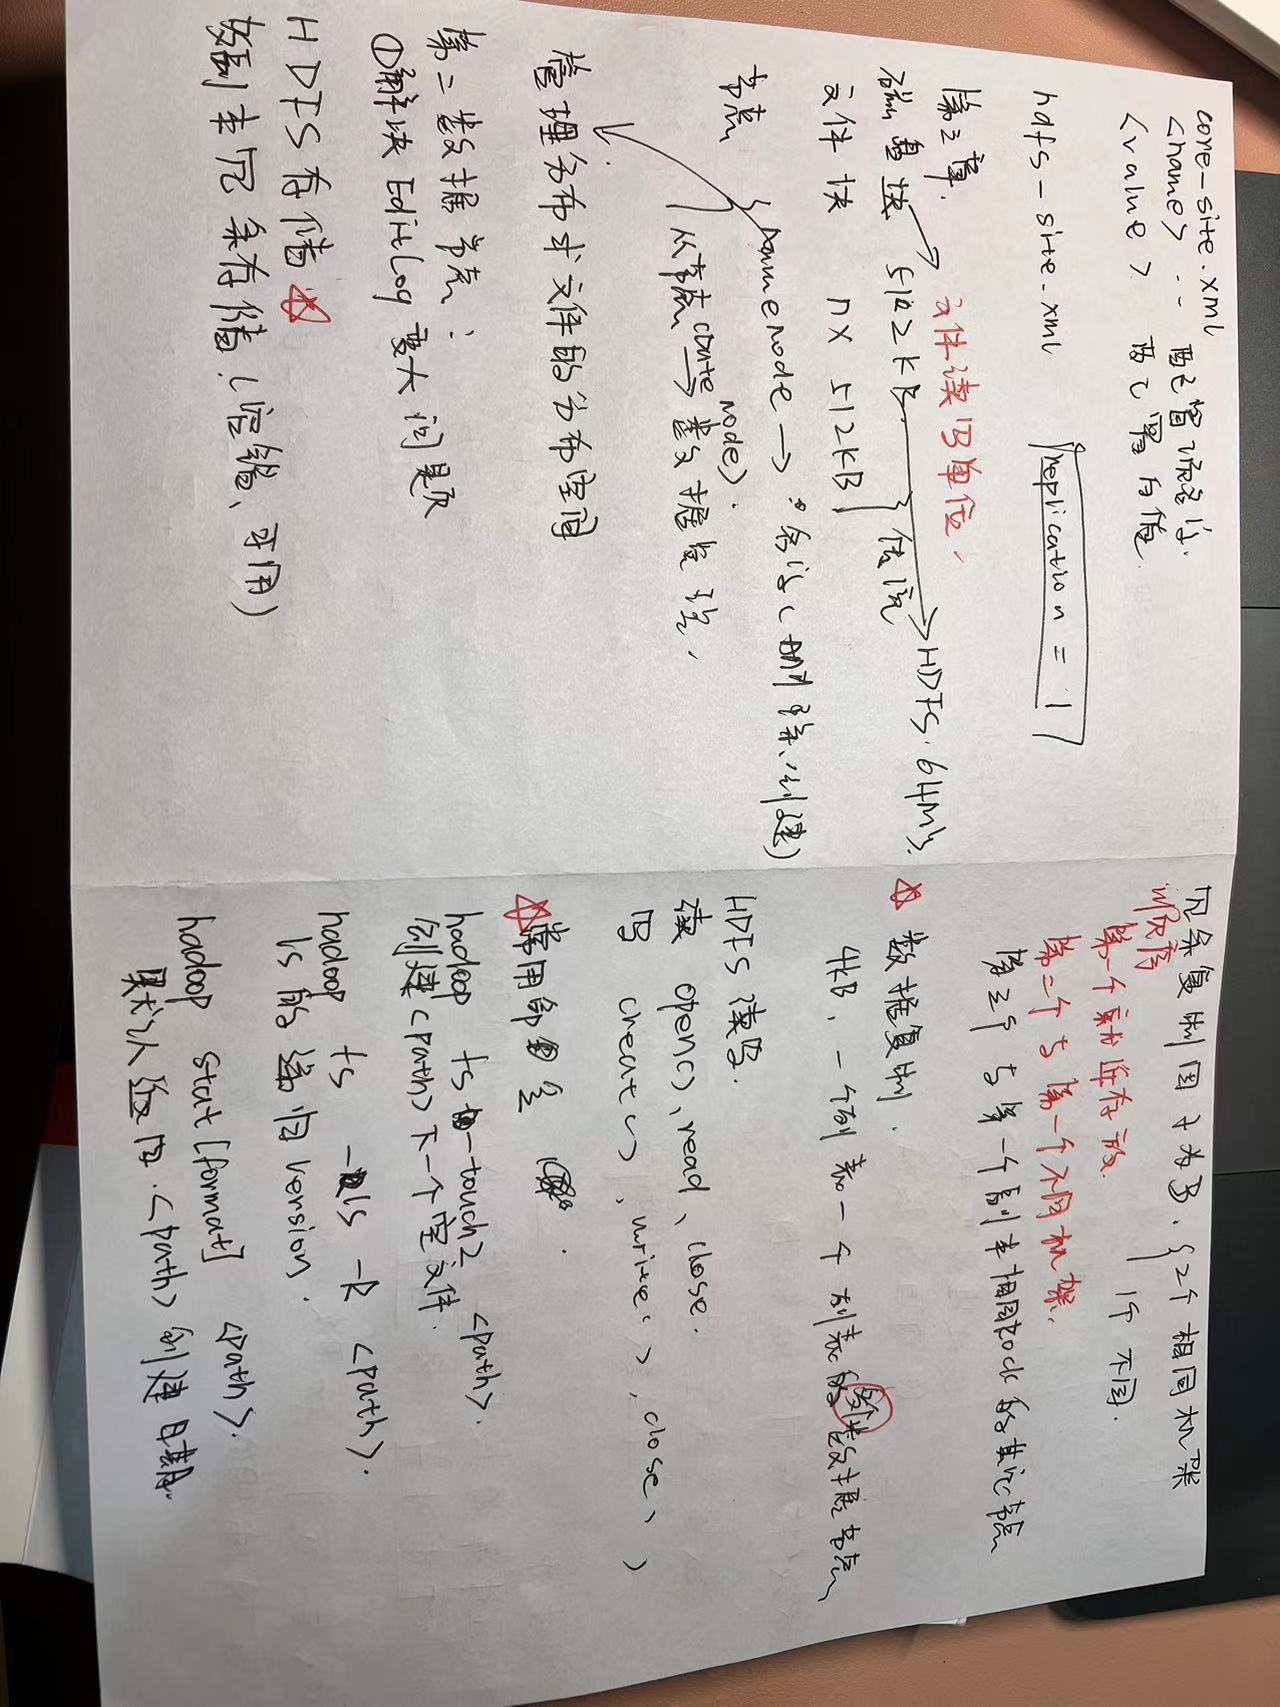 core-site.xml
<name> .. 配置项名字.
<value> 配置的值.
hdfs-site.xml replication = 1
第三章. 文件读写单位,
磁盘块 512KB HDFS.64MB.
文件块 n× 512KB 传统
节点 namenode → 名字(删除、创建)
从节点 → 数据
node).
管理分布式文件的分布空间
第二数据节点:
①解决EditLog变大问题
HDFS存储☆
多副本冗余存储.(容错、可用)
冗余复制因子为3. {2个相同机架
1个不同.
顺序
第一个就近存放.
第二个与第一个不同机架.
第三个与第一个副本相同rock的其它节点
☆ 数据复制.
4KB, 一个列表一个列表的给数据节点
HDFS读写.
读 open(), read、close.
写 creat()、write()、close、)
☆常用命令
hadoop fs -touchz <path>.
创建<path>下一个空文件.
hadoop fs -ls -R <path>.
ls的递归version.
hadoop stat[format] <path>.
默认返回.<path>创建日期.